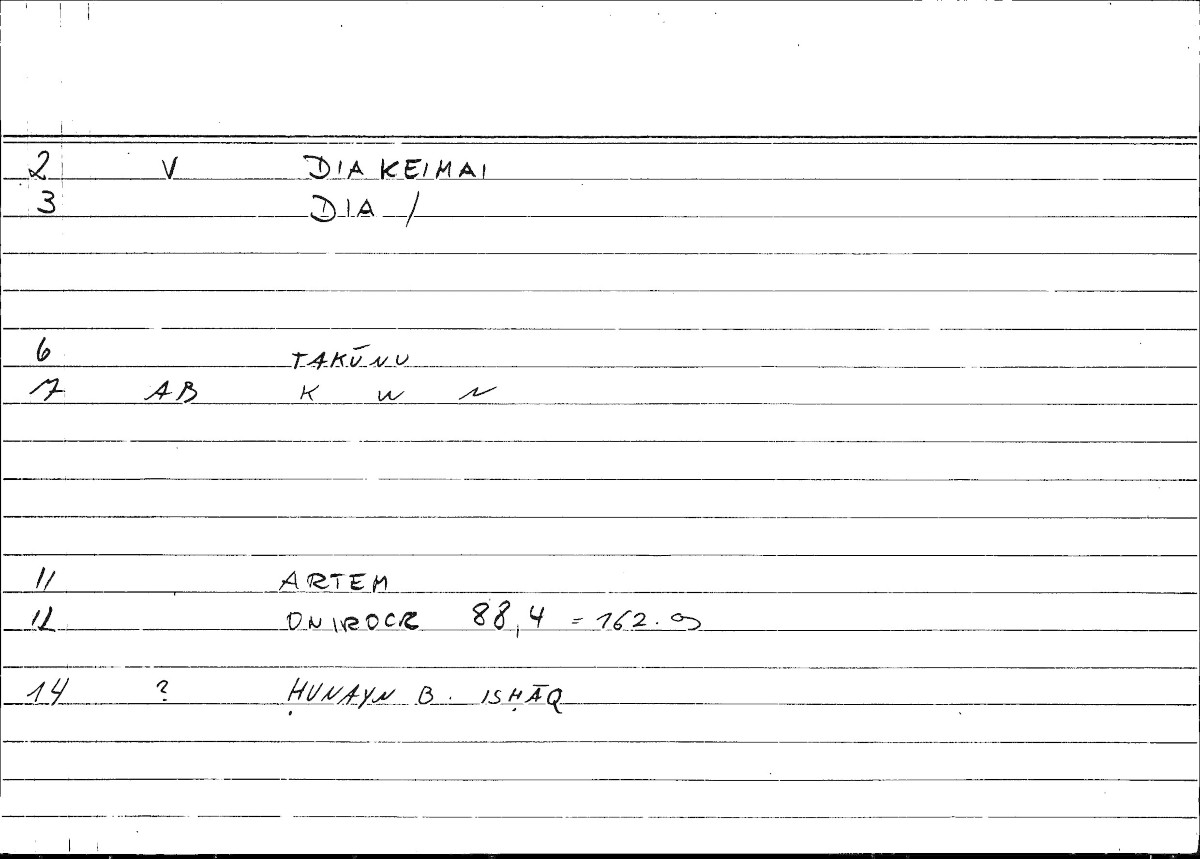 2 V DIAKEIMAI
3 DIA /
6 TAKŪNU
7 AB K W N
11 ARTEM
12 ONIROCR 88,4 = 162.9
14 ? ḤUNAYN B. ISḤĀQ